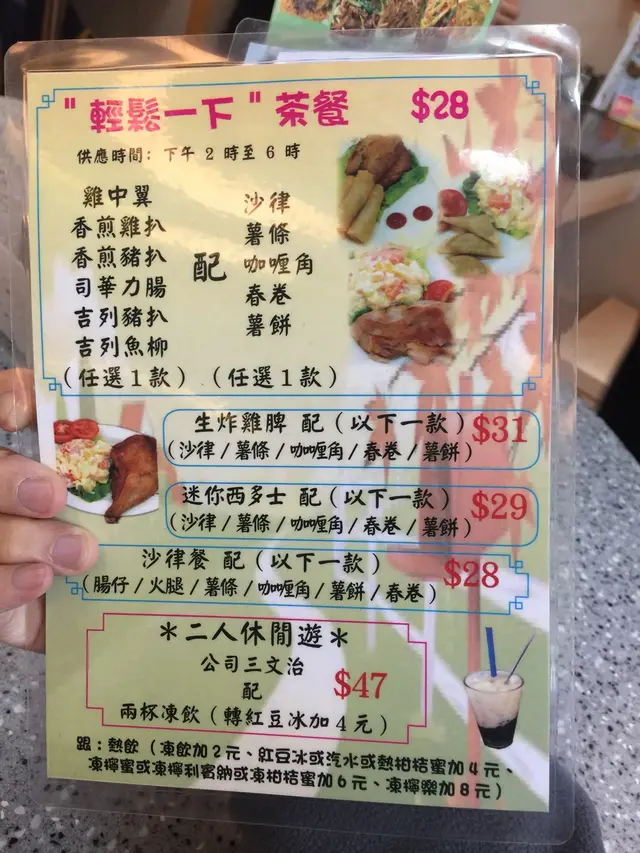 "輕鬆一下"茶餐 $28
供應時間: 下午2時至6時
雞中翼
香煎雞扒
香煎豬扒
司華力腸
吉列豬扒
吉列魚柳
(任選1款)
配
沙律
薯條
咖喱角
春卷
薯餅
(任選1款)
生炸雞脾 配(以下一款) $31
(沙律/薯條/咖喱角/春卷/薯餅)
迷你西多士 配(以下一款) $29
(沙律/薯條/咖喱角/春卷/薯餅)
沙律餐 配(以下一款) $28
(腸仔/火腿/薯條/咖喱角/薯餅/春卷)
*二人休閒遊*
公司三文治
配
$47
兩杯凍飲(轉紅豆冰加4元)
跟:熱飲(凍飲加2元、紅豆冰或汽水或熱柑桔蜜加4元、
凍檸蜜或凍檸利賓納或凍柑桔蜜加6元、凍檸樂加8元)